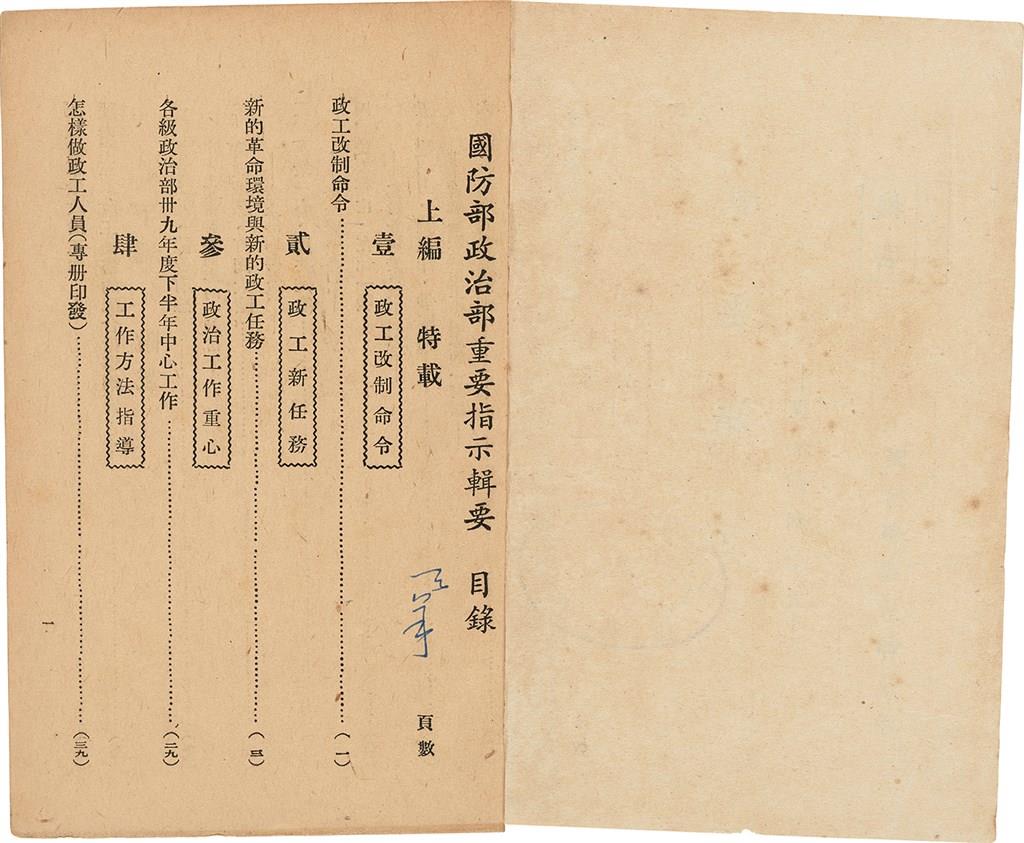 國防部政治部重要指示輯要　目錄
上編　特載　頁數
壹　政工改制命令
政工改制命令……（一）
貳　政工新任務
新的革命環境與新的政工任務……（三）
參　政治工作重心
各級政治部卅九年度下半年中心工作……（二九）
肆　工作方法指導
怎樣做政工人員（專册印發）……（三九）
一